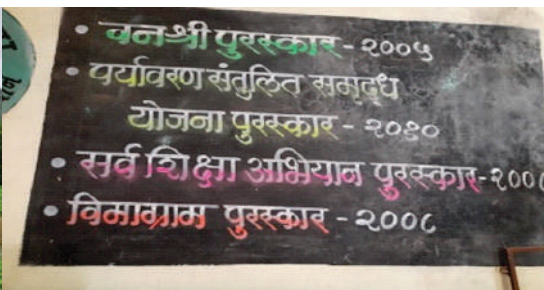 • वनश्री पुरस्कार - २००५
• पर्यावरण संतुलित समृद्ध
योजना पुरस्कार - २०१०
• सर्व शिक्षा अभियान पुरस्कार-२००
• विमाग्राम पुरस्कार - २००८